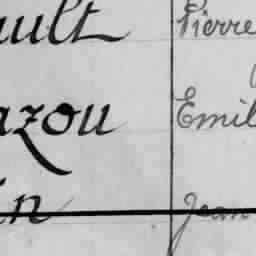 ault Pierre
azou Emil
in Jean